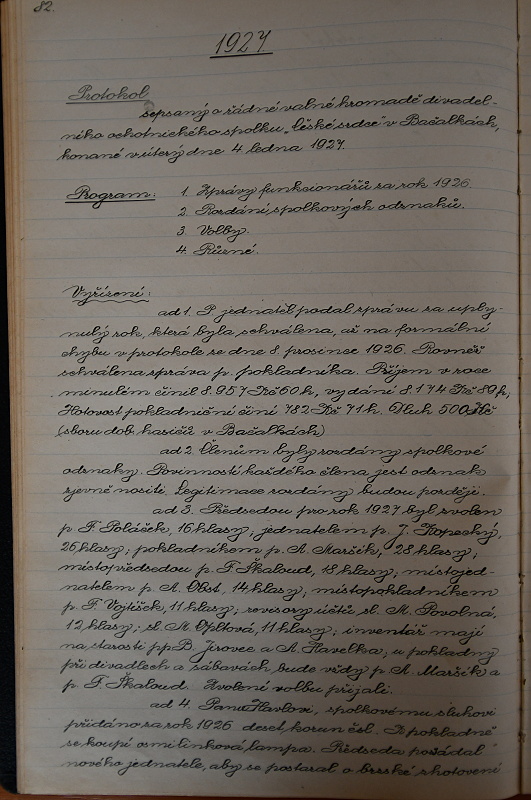 82.
1927
Protokol
sepsaný o řádné valné hromadě divadel-
ního ochotnického spolku „České srdce" v Bačalkách,
konané v úterý dne 4 ledna 1927.
Program: 1. Zprávy funkcionářů za rok 1926.
2. Rozdání spolkových odznaků.
3. Volby.
4. Různé.
Vyřízení:
ad 1. P. jednatel podal zprávu za uply-
nulý rok, která byla schválena, až na formální
chybu v protokole ze dne 8. prosince 1926. Rovněž
schválena zpráva p. pokladníka. Příjem v roce
minulém činil 8.957 Kč 60 h, vydání 8.174 Kč 89 h,
Hotovost pokladniční činí 782 Kč 71 h. Dluh 500 Kč
(sboru dob. hasičů v Bačalkách)
ad 2. Členům byly rozdány spolkové
odznaky. Povinností každého člena jest odznak
zjevně nositi. Legitimace rozdány budou později.
ad 3. Předsedou pro rok 1927 byl zvolen
p. F. Polášek, 16 hlasy; jednatelem p. J. Kopecký,
26 hlasy; pokladníkem p. A. Maršík, 28 hlasy;
místopředsedou p. F. Škaloud, 18 hlasy; místojed-
natelem p. A. Obst, 14 hlasy; místopokladníkem
p. F. Vojtíšek, 11 hlasy; revisory účtů sl. M. Povolná,
12 hlasy; sl. M. Opltová, 11 hlasy; inventář mají
na starosti pp. B. Jirovec a A. Havelka; u pokladny
při divadlech a zábavách bude vždy p. A. Maršík a
p. F. Škaloud. Zvolení volbu přijali.
ad 4. Panu Havlovi, spolkovému sluhovi
přidáno za rok 1926 deset korun čsl. K pokladně
se koupí osmilinková lampa. Předseda požádal
nového jednatele, aby se postaral o brzské zhotovení